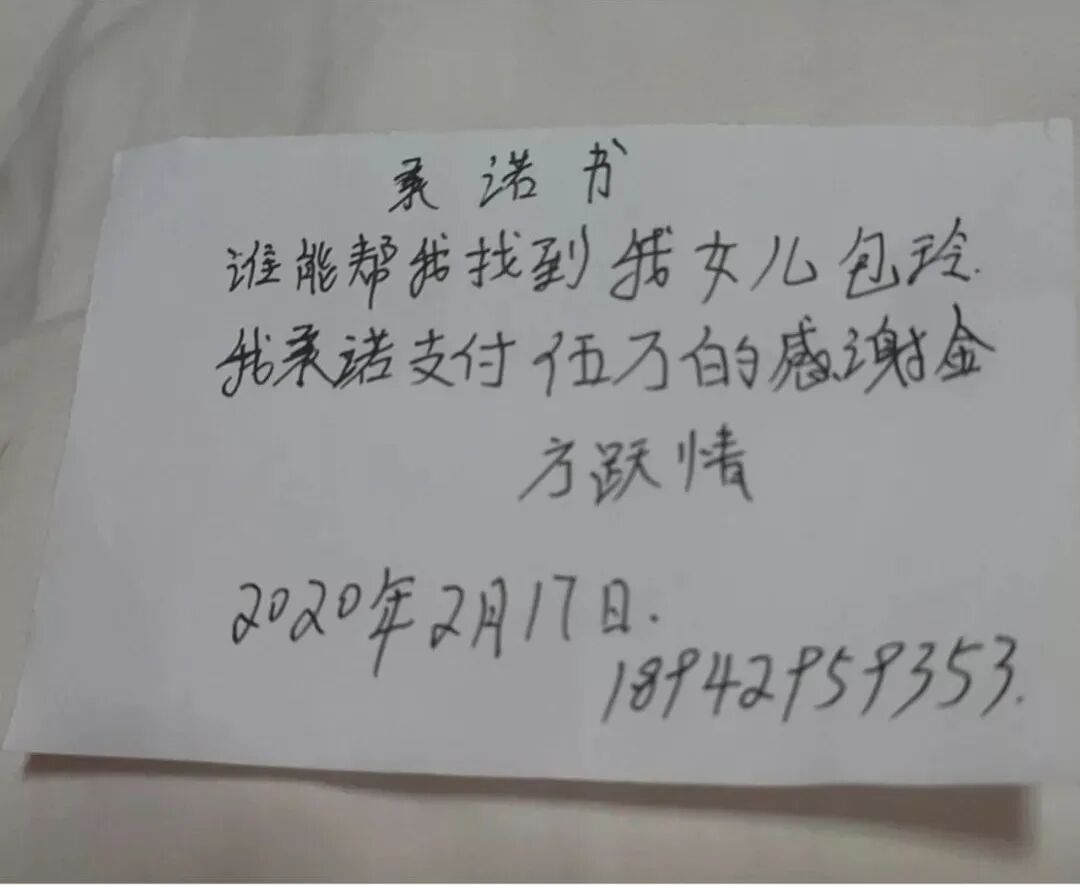 承诺书
谁能帮我找到我女儿包玲.
我承诺支付伍万的感谢金
方跃情
2020年2月17日.
18942959353.